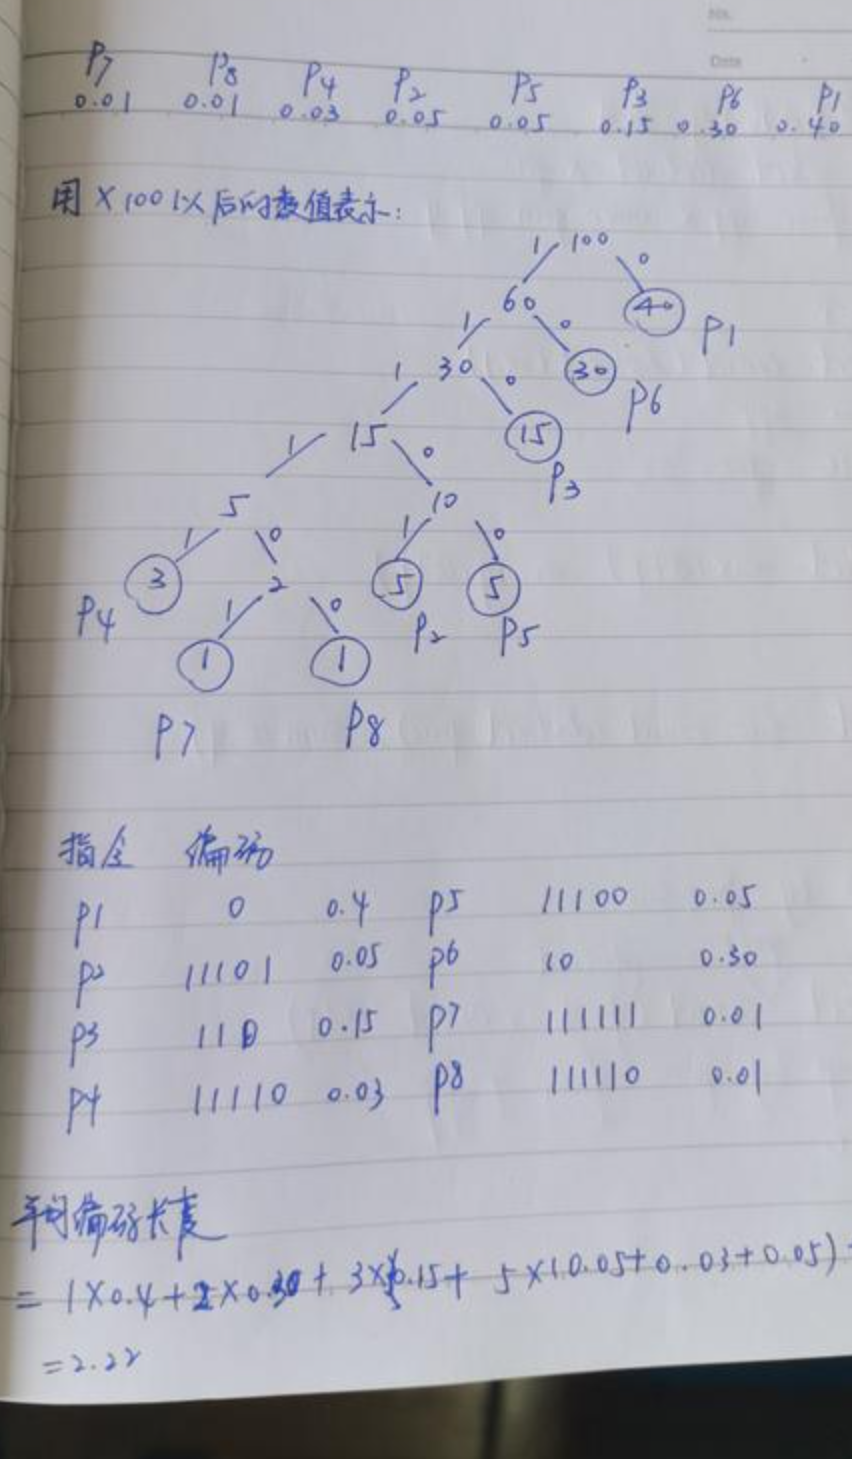 No.
Date
P7 P8 P4 P2 P5 P3 P6 P1
0.01 0.01 0.03 0.05 0.05 0.15 0.30 0.40
用×100以后的数值表示:
1 100 0
1 60 0 40 P1
1 30 0 30 P6
1 15 0 15 P3
5 10
1 0 1 0
3 2 5 5
P4 1 0 P2 P5
1 1
P7 P8
指令 编码
P1 0 0.4 P5 11100 0.05
P2 11101 0.05 P6 10 0.30
P3 110 0.15 P7 111111 0.01
P4 11110 0.03 P8 111110 0.01
平均编码长度
= 1×0.4+2×0.30+3×0.15+5×(0.05+0.03+0.05)
=2.22